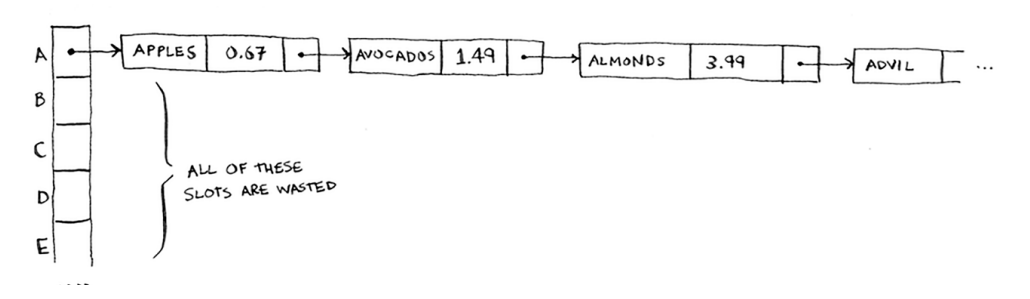 A APPLES 0.67 AVOCADOS 1.49 ALMONDS 3.99 ADVIL ...
B
C
D
E
ALL OF THESE
SLOTS ARE WASTED